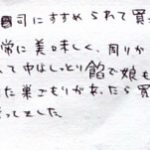 司にすすめられて買
常に美味しく、周りか
て中はしっとり餡で娘も
た巣ごもりがあったら買
ました